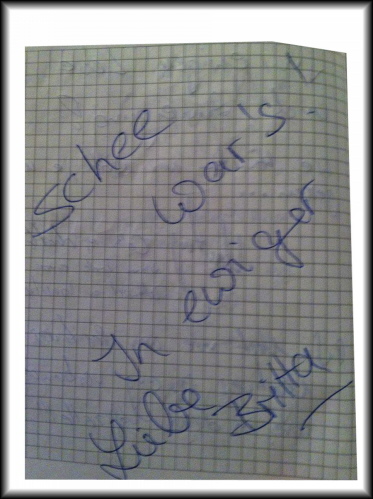 Schee war's!
In ewiger
Liebe Britta